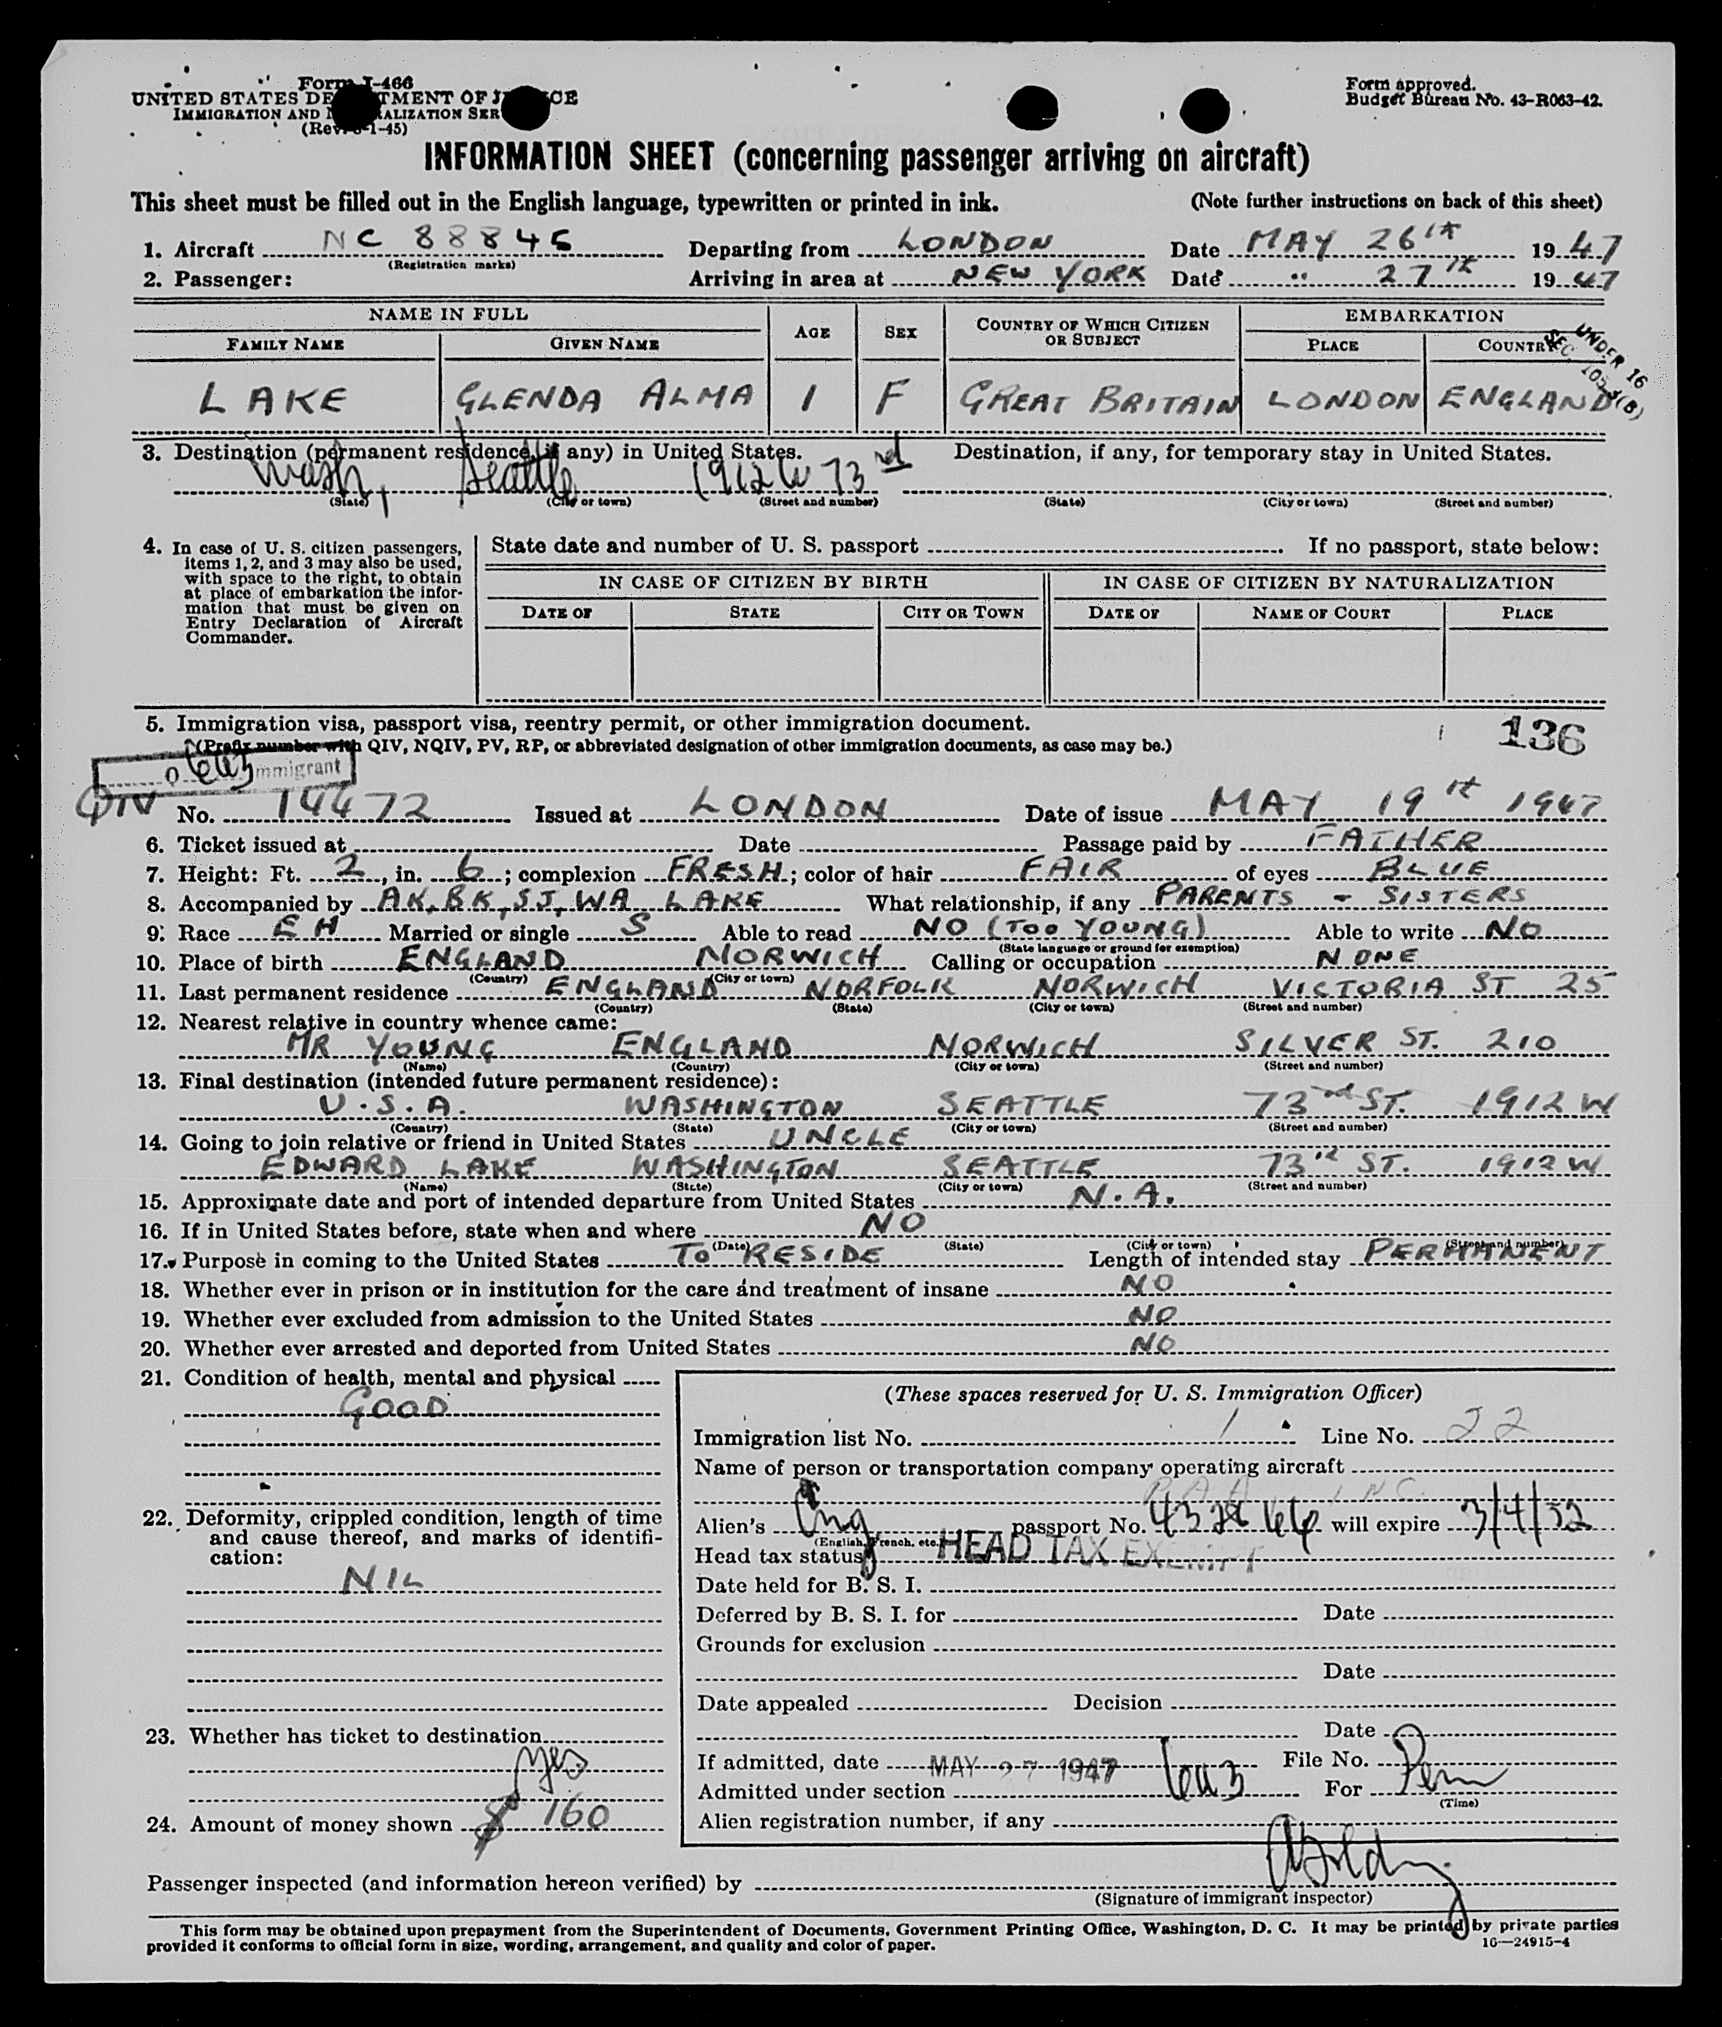 Form I-466
UNITED STATES DE TMENT OF J CE
IMMIGRATION AND N ALIZATION SER
(Rev. -1-45)
Form approved.
Budget Bureau No. 43-R063-42.
INFORMATION SHEET (concerning passenger arriving on aircraft)
This sheet must be filled out in the English language, typewritten or printed in ink. (Note further instructions on back of this sheet)
1. Aircraft NC 88845 Departing from LONDON Date MAY 26th 1947
(Registration marks)
2. Passenger: Arriving in area at NEW YORK Date " 27th 1947
NAME IN FULL AGE SEX COUNTRY OF WHICH CITIZEN OR SUBJECT EMBARKATION
FAMILY NAME GIVEN NAME PLACE COUNTRY
UNDER 16
SEC. 105.3(B)
LAKE GLENDA ALMA 1 F GREAT BRITAIN LONDON ENGLAND
3. Destination (permanent residence, if any) in United States. Destination, if any, for temporary stay in United States.
Wash, Seattle 1912 W 73rd
(State) (City or town) (Street and number) (State) (City or town) (Street and number)
4. In case of U. S. citizen passengers, items 1, 2, and 3 may also be used, with space to the right, to obtain at place of embarkation the information that must be given on Entry Declaration of Aircraft Commander.
State date and number of U. S. passport If no passport, state below:
IN CASE OF CITIZEN BY BIRTH IN CASE OF CITIZEN BY NATURALIZATION
DATE OF STATE CITY OR TOWN DATE OF NAME OF COURT PLACE
5. Immigration visa, passport visa, reentry permit, or other immigration document.
136
(Prefix number with QIV, NQIV, PV, RP, or abbreviated designation of other immigration documents, as case may be.)
Q 6a3 Immigrant
QIV No. 14472 Issued at LONDON Date of issue MAY 19th 1947
6. Ticket issued at Date Passage paid by FATHER
7. Height: Ft. 2, in. 6; complexion FRESH; color of hair FAIR of eyes BLUE
8. Accompanied by AK, BK, SJ, WA LAKE What relationship, if any PARENTS - SISTERS
9. Race EH Married or single S Able to read NO (TOO YOUNG) Able to write NO
(State language or ground for exemption)
10. Place of birth ENGLAND NORWICH Calling or occupation NONE
(Country) (City or town)
11. Last permanent residence ENGLAND NORFOLK NORWICH VICTORIA ST 25
(Country) (State) (City or town) (Street and number)
12. Nearest relative in country whence came:
MR YOUNG ENGLAND NORWICH SILVER ST. 210
(Name) (Country) (City or town) (Street and number)
13. Final destination (intended future permanent residence):
U.S.A. WASHINGTON SEATTLE 73rd ST. 1912 W
(Country) (State) (City or town) (Street and number)
14. Going to join relative or friend in United States UNCLE
EDWARD LAKE WASHINGTON SEATTLE 73rd ST. 1912 W
(Name) (State) (City or town) (Street and number)
15. Approximate date and port of intended departure from United States N.A.
16. If in United States before, state when and where NO
(Date) (State) (City or town) (Street and number)
17. Purpose in coming to the United States TO RESIDE Length of intended stay PERMANENT
18. Whether ever in prison or in institution for the care and treatment of insane NO
19. Whether ever excluded from admission to the United States NO
20. Whether ever arrested and deported from United States NO
21. Condition of health, mental and physical
GOOD
22. Deformity, crippled condition, length of time and cause thereof, and marks of identification:
NIL
23. Whether has ticket to destination
yes
24. Amount of money shown $ 160
(These spaces reserved for U. S. Immigration Officer)
Immigration list No. 1 Line No. 22
Name of person or transportation company operating aircraft
P A A INC.
Alien's Eng passport No. 432866 will expire 3/4/52
(English, French, etc.)
Head tax status HEAD TAX EXEMPT
Date held for B. S. I.
Deferred by B. S. I. for Date
Grounds for exclusion
Date
Date appealed Decision
Date
If admitted, date MAY 27 1947 File No.
Admitted under section 6a3 For Perm
(Time)
Alien registration number, if any
Passenger inspected (and information hereon verified) by
(Signature of immigrant inspector)
This form may be obtained upon prepayment from the Superintendent of Documents, Government Printing Office, Washington, D. C. It may be printed by private parties
provided it conforms to official form in size, wording, arrangement, and quality and color of paper. 16—24915-4